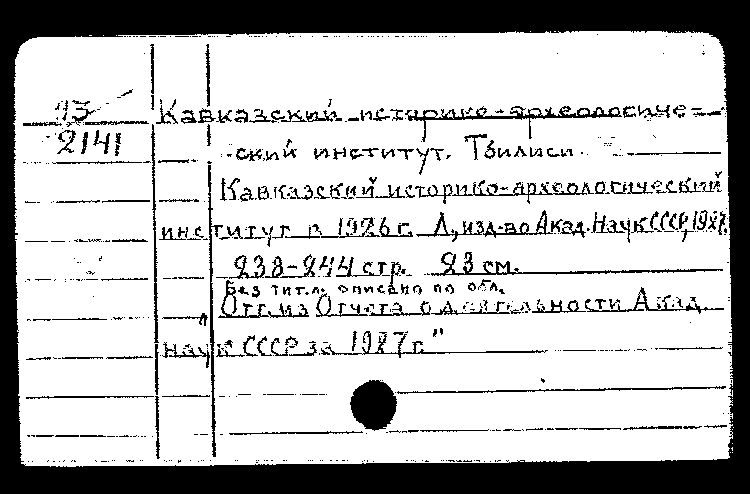 13
Кавказский историко-археологиче-
2141
ский институт. Тбилиси.
Кавказский историко-археологический
институт в 1926 г. Л., изд-во Акад. Наук СССР, 1927.
238-244 стр. 23 см.
Без тит.л. описано по обл.
Отт. из „Отчета о деятельности Акад.
наук СССР за 1927 г."